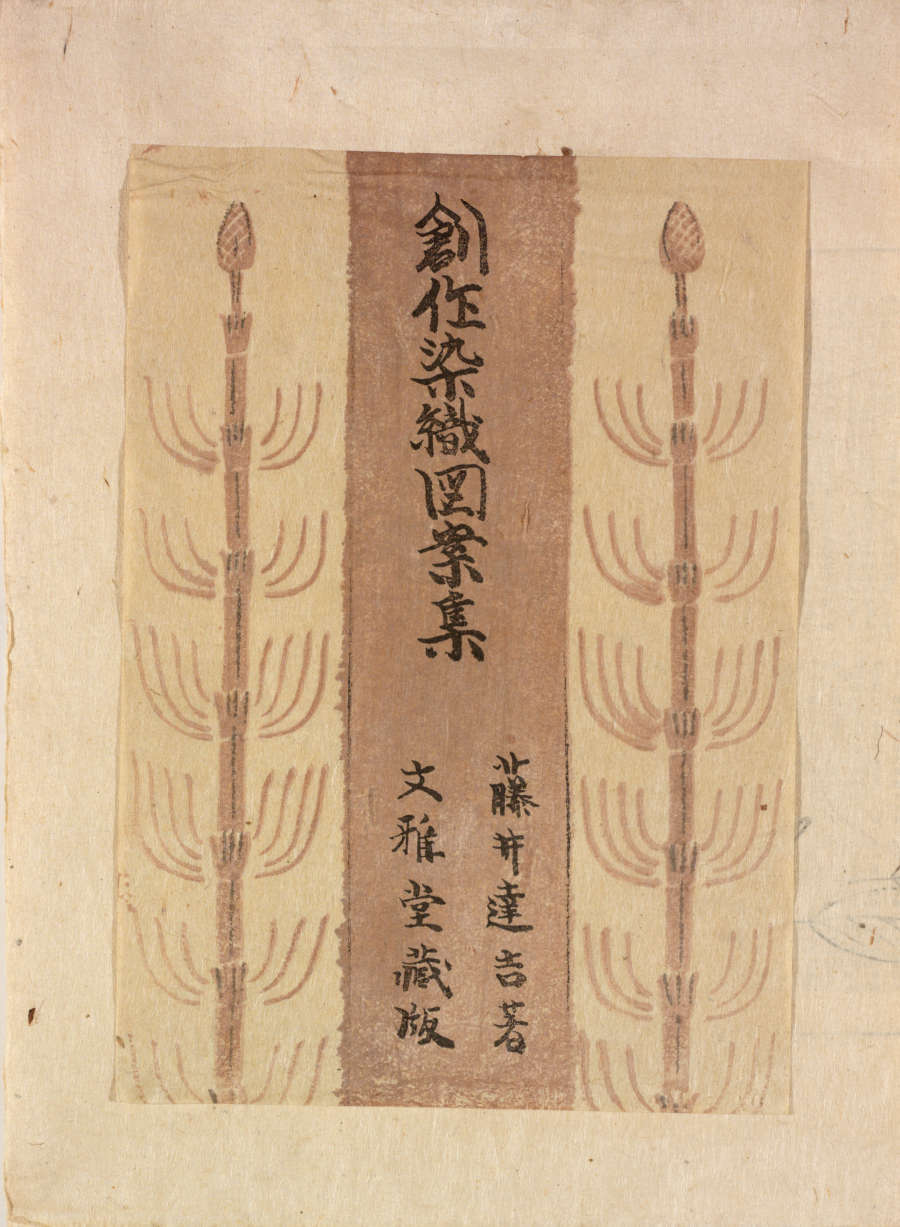 創作染織図案集
藤井達吉著
文雅堂蔵版